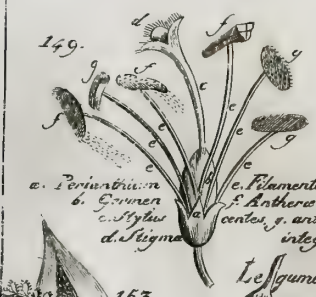 149.
d
f
g
g
f
f
c
e
e
e
e
e
g
b
a
a. Perianthium
b. Germen
c. Stylus
d. Stigma
e. Filament
f. Antheræ
centes, g. ant
integ
153
Legume